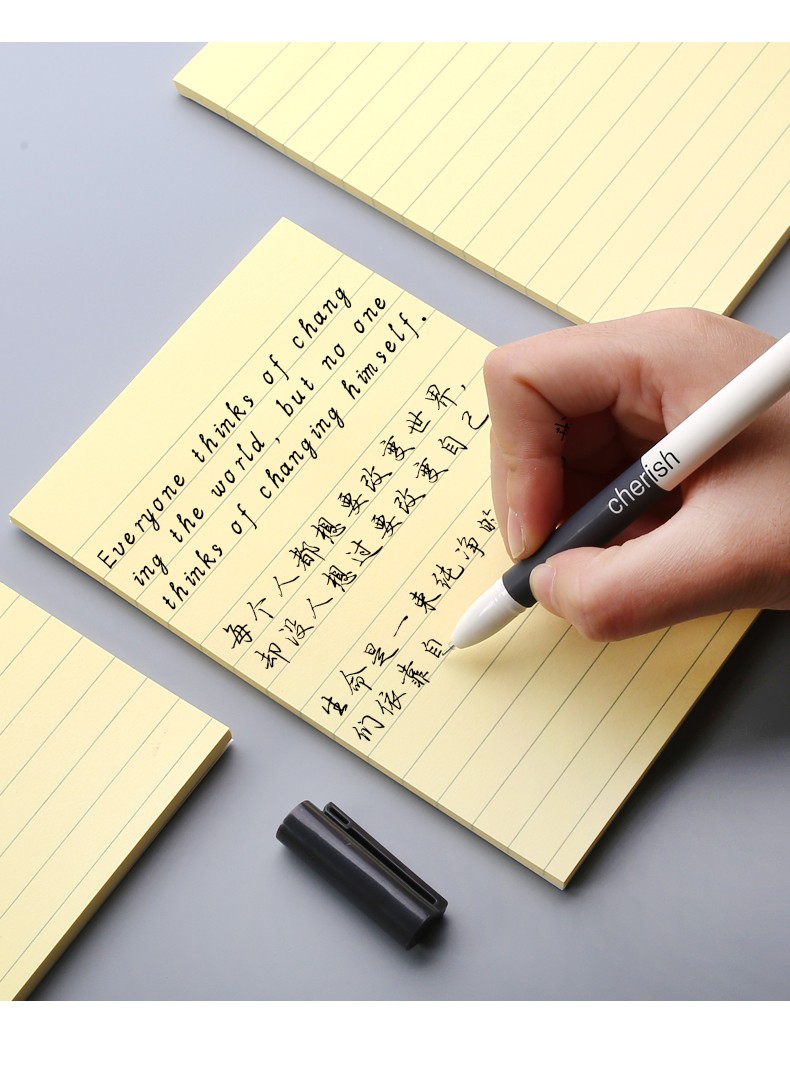 Everyone thinks of chang
ing the world, but no one
thinks of changing himself.
每个人都想要改变世界,
却没人想过要改变自己
生命是一束纯净的
们依靠自
cherish